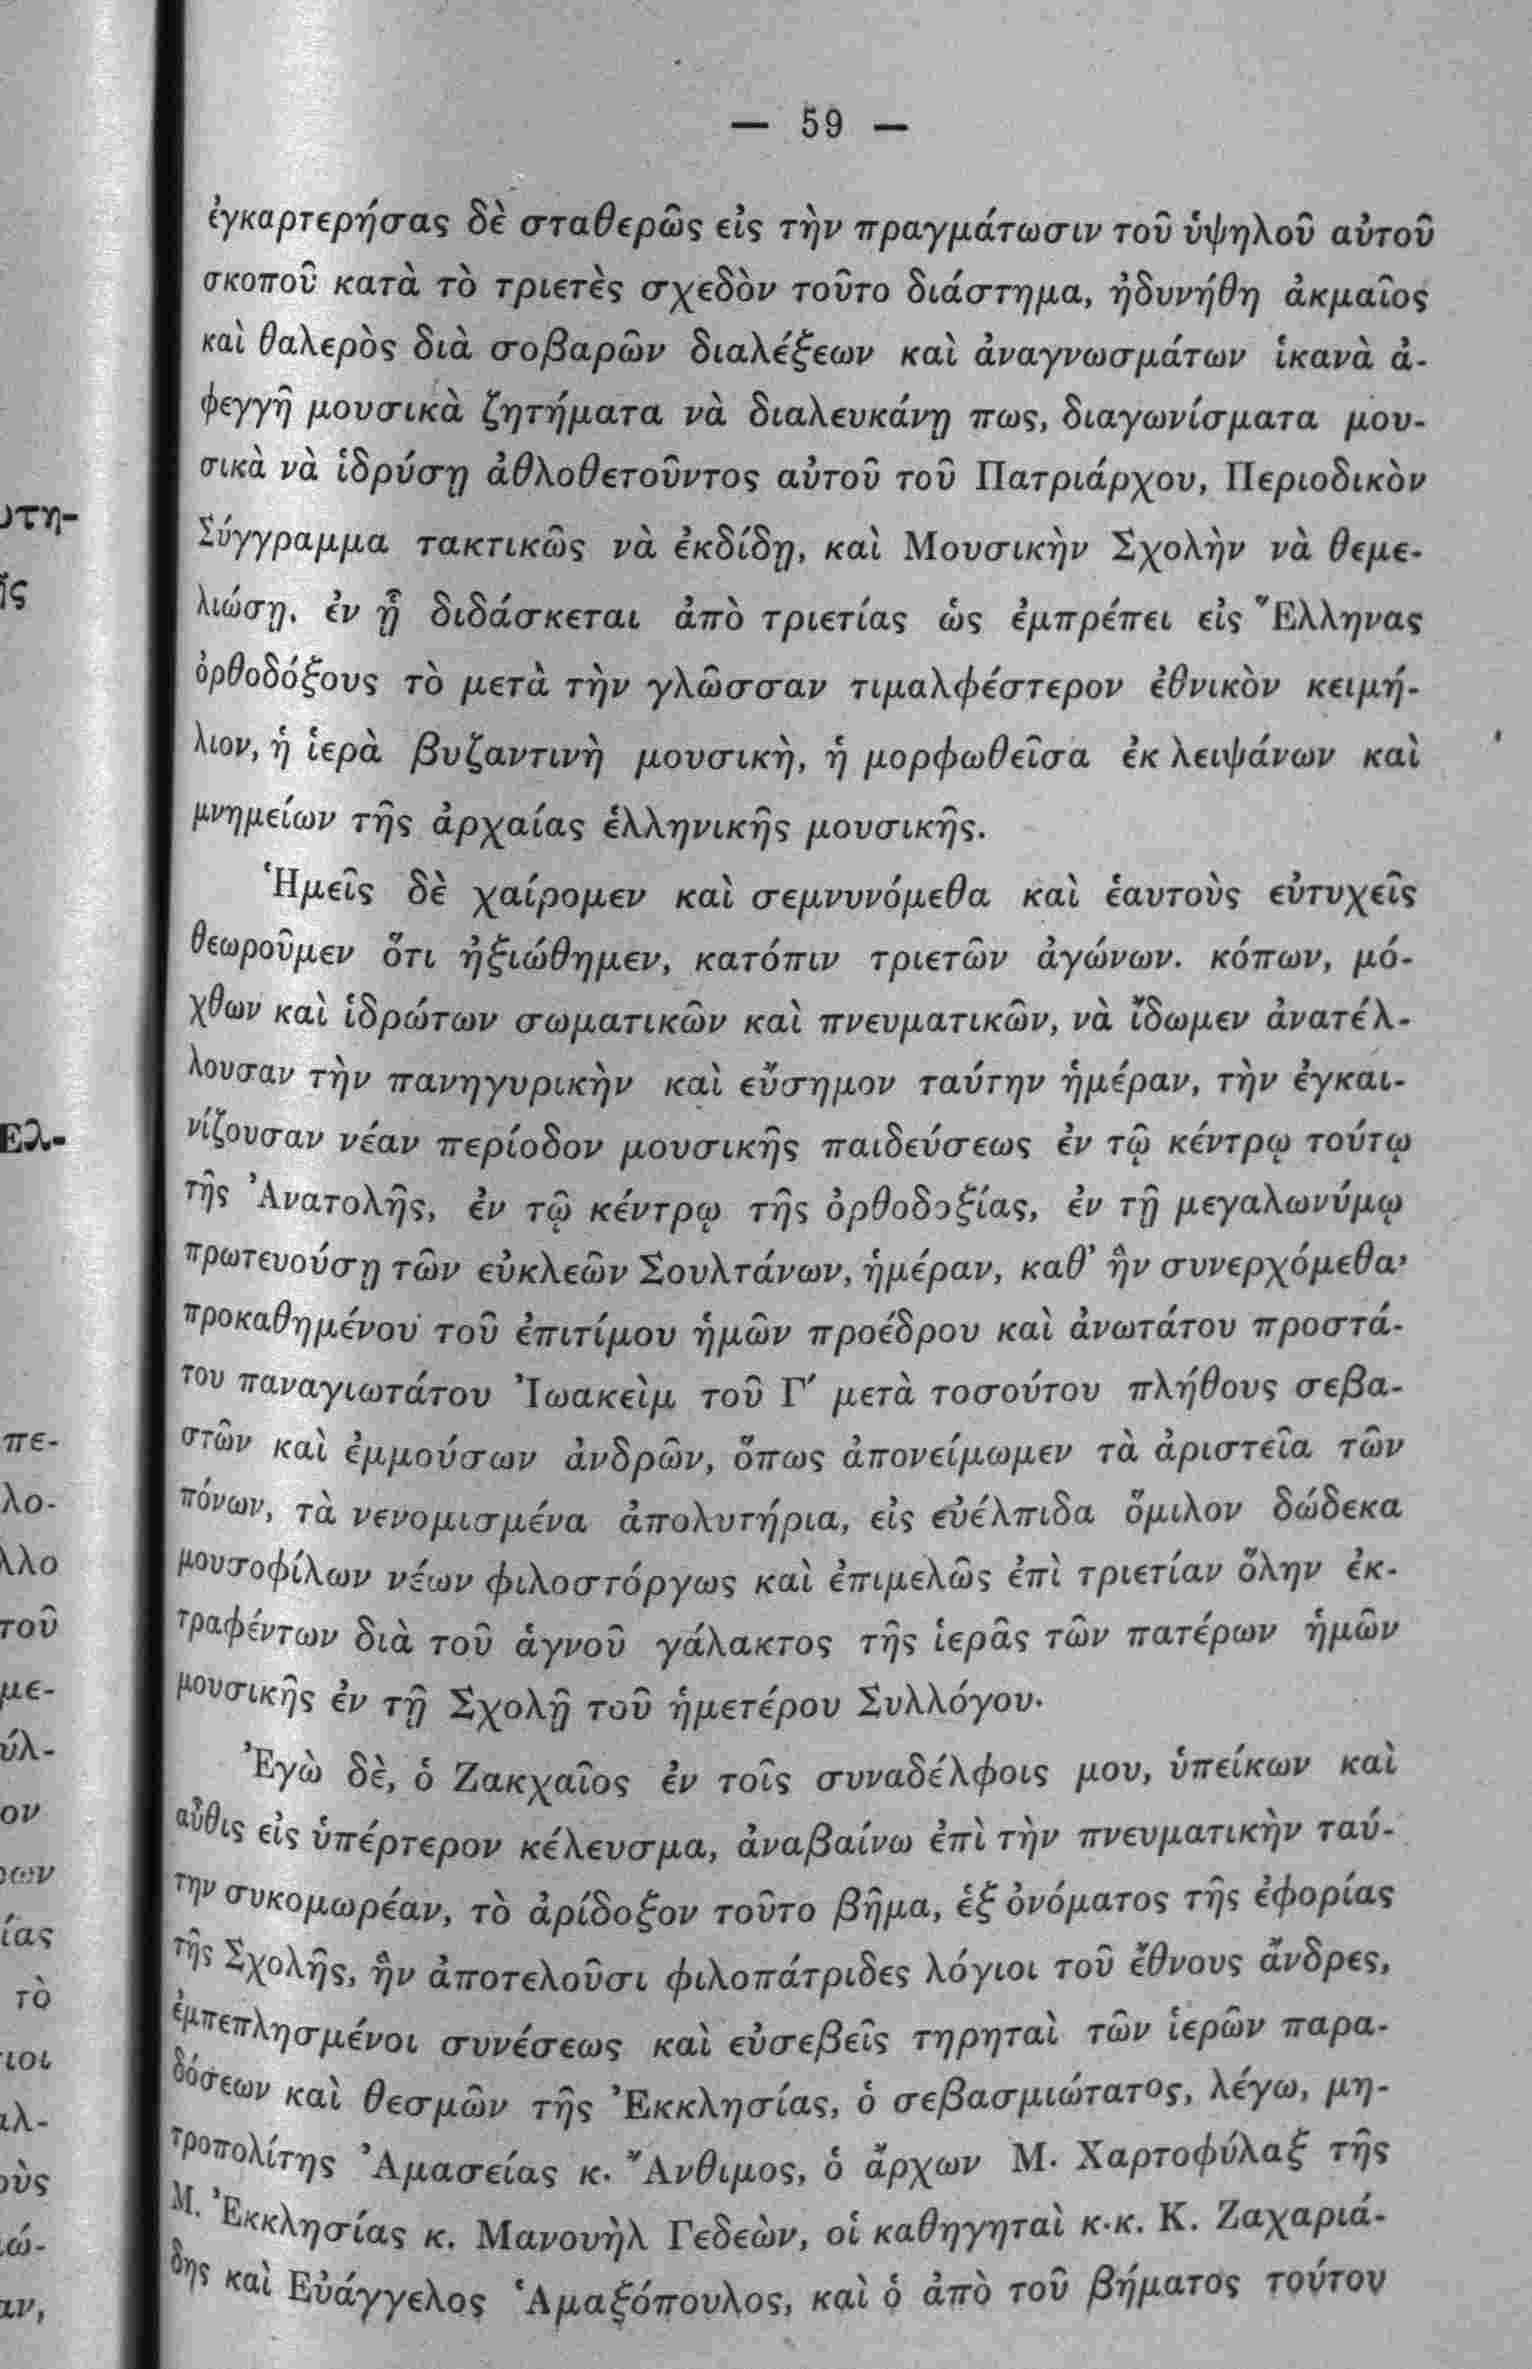 — 59 —
ἐγκαρτερήσας δὲ σταθερῶς εἰς τὴν πραγμάτωσιν τοῦ ὑψηλοῦ αὐτοῦ
σκοποῦ κατὰ τὸ τριετὲς σχεδὸν τοῦτο διάστημα, ἠδυνήθη ἀκμαῖος
καὶ θαλερὸς διὰ σοβαρῶν διαλέξεων καὶ ἀναγνωσμάτων ἱκανὰ ἀ-
φεγγῆ μουσικὰ ζητήματα νὰ διαλευκάνῃ πως, διαγωνίσματα μου-
σικὰ νὰ ἱδρύσῃ ἀθλοθετοῦντος αὐτοῦ τοῦ Πατριάρχου, Περιοδικὸν
Σύγγραμμα τακτικῶς νὰ ἐκδίδῃ, καὶ Μουσικὴν Σχολὴν νὰ θεμε-
λιώσῃ, ἐν ᾗ διδάσκεται ἀπὸ τριετίας ὡς ἐμπρέπει εἰς Ἕλληνας
ὀρθοδόξους τὸ μετὰ τὴν γλῶσσαν τιμαλφέστερον ἐθνικὸν κειμή-
λιον, ἡ ἱερὰ βυζαντινὴ μουσικὴ, ἡ μορφωθεῖσα ἐκ λειψάνων καὶ
μνημείων τῆς ἀρχαίας ἑλληνικῆς μουσικῆς.
Ἡμεῖς δὲ χαίρομεν καὶ σεμνυνόμεθα καὶ ἑαυτοὺς εὐτυχεῖς
θεωροῦμεν ὅτι ἠξιώθημεν, κατόπιν τριετῶν ἀγώνων. κόπων, μό-
χθων καὶ ἱδρώτων σωματικῶν καὶ πνευματικῶν, νὰ ἴδωμεν ἀνατέλ-
λουσαν τὴν πανηγυρικὴν καὶ εὔσημον ταύτην ἡμέραν, τὴν ἐγκαι-
νίζουσαν νέαν περίοδον μουσικῆς παιδεύσεως ἐν τῷ κέντρῳ τούτῳ
τῆς Ἀνατολῆς, ἐν τῷ κέντρῳ τῆς ὀρθοδοξίας, ἐν τῇ μεγαλωνύμῳ
πρωτευούσῃ τῶν εὐκλεῶν Σουλτάνων, ἡμέραν, καθ’ ἣν συνερχόμεθα,
προκαθημένου τοῦ ἐπιτίμου ἡμῶν προέδρου καὶ ἀνωτάτου προστά-
του παναγιωτάτου Ἰωακεὶμ τοῦ Γ′ μετὰ τοσούτου πλήθους σεβα-
στῶν καὶ ἐμμούσων ἀνδρῶν, ὅπως ἀπονείμωμεν τὰ ἀριστεῖα τῶν
πόνων, τὰ νενομισμένα ἀπολυτήρια, εἰς εὐέλπιδα ὅμιλον δώδεκα
μουσοφίλων νέων φιλοστόργως καὶ ἐπιμελῶς ἐπὶ τριετίαν ὅλην ἐκ-
τραφέντων διὰ τοῦ ἁγνοῦ γάλακτος τῆς ἱερᾶς τῶν πατέρων ἡμῶν
μουσικῆς ἐν τῇ Σχολῇ τοῦ ἡμετέρου Συλλόγου.
Ἐγὼ δὲ, ὁ Ζακχαῖος ἐν τοῖς συναδέλφοις μου, ὑπείκων καὶ
αὖθις εἰς ὑπέρτερον κέλευσμα, ἀναβαίνω ἐπὶ τὴν πνευματικὴν ταύ-
την συκομωρέαν, τὸ ἀρίδοξον τοῦτο βῆμα, ἐξ ὀνόματος τῆς ἐφορίας
τῆς Σχολῆς, ἣν ἀποτελοῦσι φιλοπάτριδες λόγιοι τοῦ ἔθνους ἄνδρες,
ἐμπεπλησμένοι συνέσεως καὶ εὐσεβεῖς τηρηταὶ τῶν ἱερῶν παρα-
δόσεων καὶ θεσμῶν τῆς Ἐκκλησίας, ὁ σεβασμιώτατος, λέγω, μη-
τροπολίτης Ἀμασείας κ. Ἄνθιμος, ὁ ἄρχων Μ. Χαρτοφύλαξ τῆς
Μ. Ἐκκλησίας κ. Μανουὴλ Γεδεὼν, οἱ καθηγηταὶ κ.κ. Κ. Ζαχαριά-
δης καὶ Εὐάγγελος Ἁμαξόπουλος, καὶ ὁ ἀπὸ τοῦ βήματος τούτου